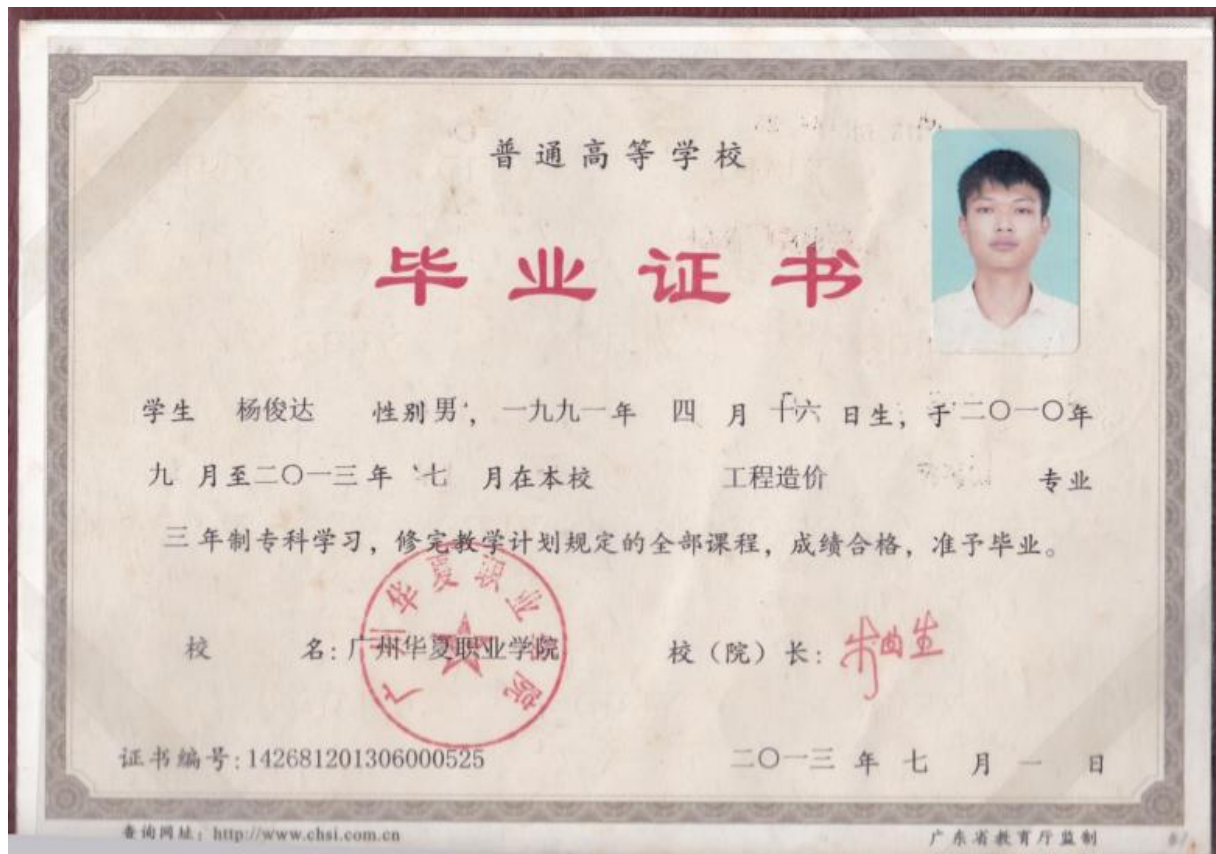 普通高等学校
毕业证书
学生 杨俊达 性别 男，一九九一年 四 月 十六 日生，于二〇一〇年
九 月至二〇一三年 七 月在本校 工程造价 专业
三 年制专科学习，修完教学计划规定的全部课程，成绩合格，准予毕业。
广州华夏职业学院
校 名：广州华夏职业学院 校（院）长：
证书编号：142681201306000525 二〇一三 年 七 月 一 日
查询网址：http://www.chsi.com.cn 广东省教育厅监制